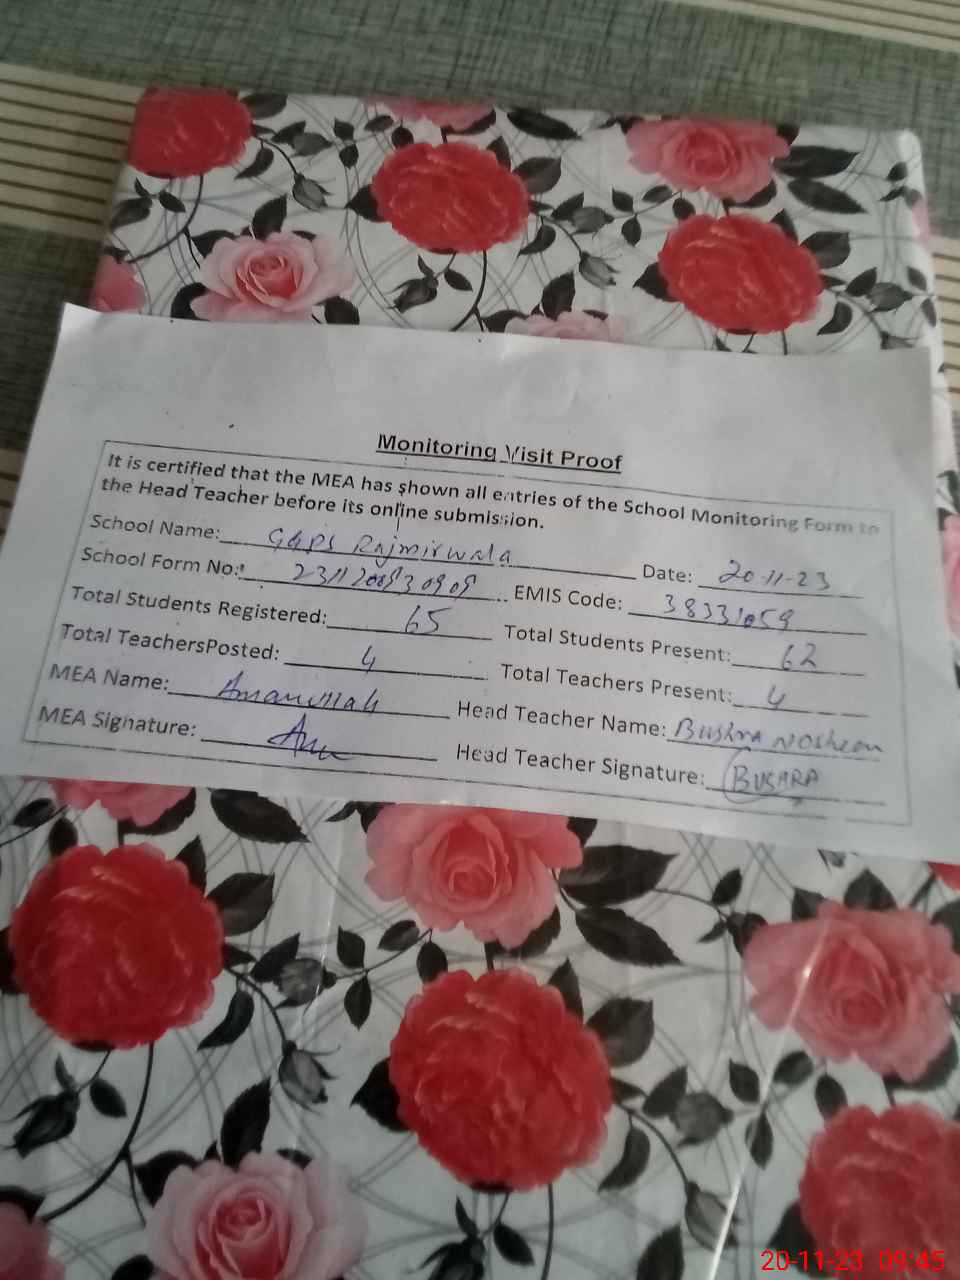 Monitoring Visit Proof
It is certified that the MEA has shown all entries of the School Monitoring Form to
the Head Teacher before its online submission.
School Name: GGPS Rajmirwala Date: 20-11-23
School Form No.: EMIS Code: 38331059
Total Students Registered: 65 Total Students Present: 62
Total TeachersPosted: 4 Total Teachers Present: 4
MEA Name: Amanullah Head Teacher Name: Bushra Nosheen
MEA Signature: Head Teacher Signature: BUSHRA
20-11-23 09:45